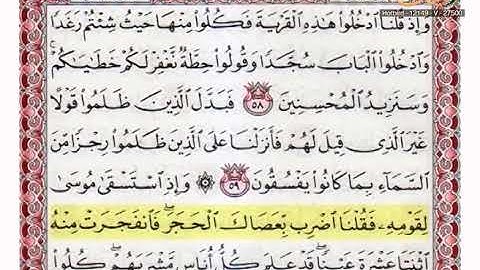 Hotbird - 12149 - V - 27500
وَإِذْ قُلْنَا ٱدْخُلُوا۟ هَٰذِهِ ٱلْقَرْيَةَ فَكُلُوا۟ مِنْهَا حَيْثُ شِئْتُمْ رَغَدًا
وَٱدْخُلُوا۟ ٱلْبَابَ سُجَّدًا وَقُولُوا۟ حِطَّةٌ نَّغْفِرْ لَكُمْ خَطَٰيَٰكُمْ ۚ
وَسَنَزِيدُ ٱلْمُحْسِنِينَ ٥٨ فَبَدَّلَ ٱلَّذِينَ ظَلَمُوا۟ قَوْلًا
غَيْرَ ٱلَّذِى قِيلَ لَهُمْ فَأَنزَلْنَا عَلَى ٱلَّذِينَ ظَلَمُوا۟ رِجْزًا مِّنَ
ٱلسَّمَآءِ بِمَا كَانُوا۟ يَفْسُقُونَ ٥٩ ۞ وَإِذِ ٱسْتَسْقَىٰ مُوسَىٰ
لِقَوْمِهِۦ فَقُلْنَا ٱضْرِب بِّعَصَاكَ ٱلْحَجَرَ ۖ فَٱنفَجَرَتْ مِنْهُ
ٱثْنَتَا عَشْرَةَ عَيْنًا ۖ قَدْ عَلِمَ كُلُّ أُنَاسٍ مَّشْرَبَهُمْ ۖ كُلُوا۟